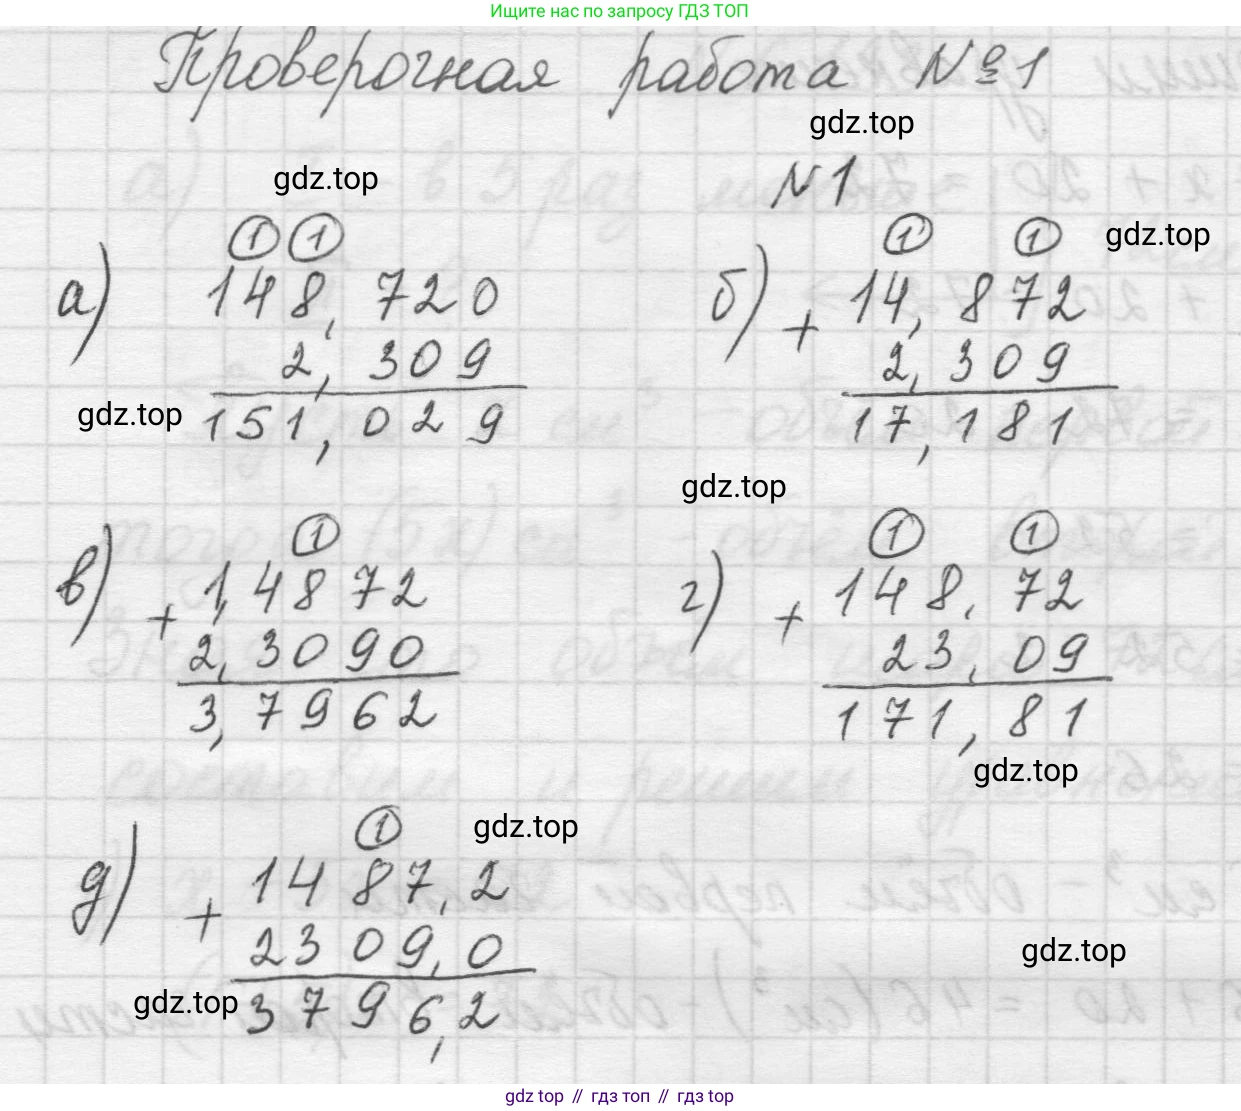 Ищите нас по запросу ГДЗ ТОП
Проверочная работа №1
gdz.top
gdz.top
N1
① ①
① ①
gdz.top
а) 148,720
2,309
151,029
б) + 14,872
2,309
17,181
gdz.top
gdz.top
①
в) + 1,4872
2,3090
3,7962
① ①
г) + 148,72
23,09
171,81
gdz.top
①
gdz.top
д) + 1487,2
2309,0
3796,2
gdz.top
gdz.top
gdz top // гдз топ // гдз top